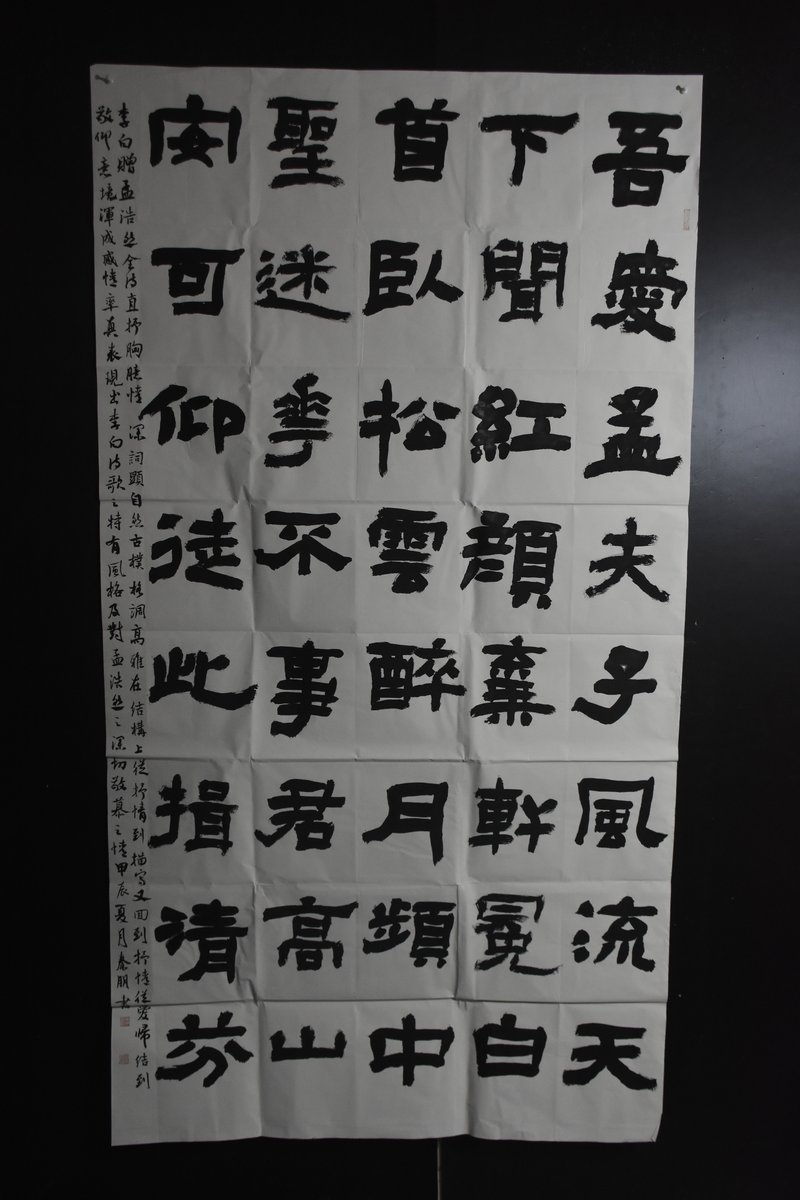 吾愛孟夫子風流天
下聞紅顏棄軒冕白
首臥松雲醉月頻中
聖迷花不事君高山
安可仰徒此揖清芬
李白贈孟浩然全詩直抒胸臆情深詞顯自然古樸格調高雅在結構上從抒情到描寫又回到抒情從愛歸結到
敬仰意境渾成感情率真表現出李白詩歌之特有風格及對孟浩然之深切敬慕之情甲辰夏月秦朋